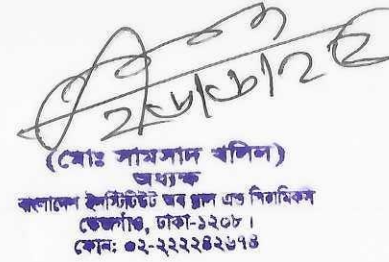 (মোঃ সামসাদ খলিল)
অধ্যক্ষ
বাংলাদেশ ইনস্টিটিউট অব গ্লাস এন্ড সিরামিকস
তেজগাঁও, ঢাকা-১২০৮।
ফোন: ০২-২২২২৪২৬৭৪